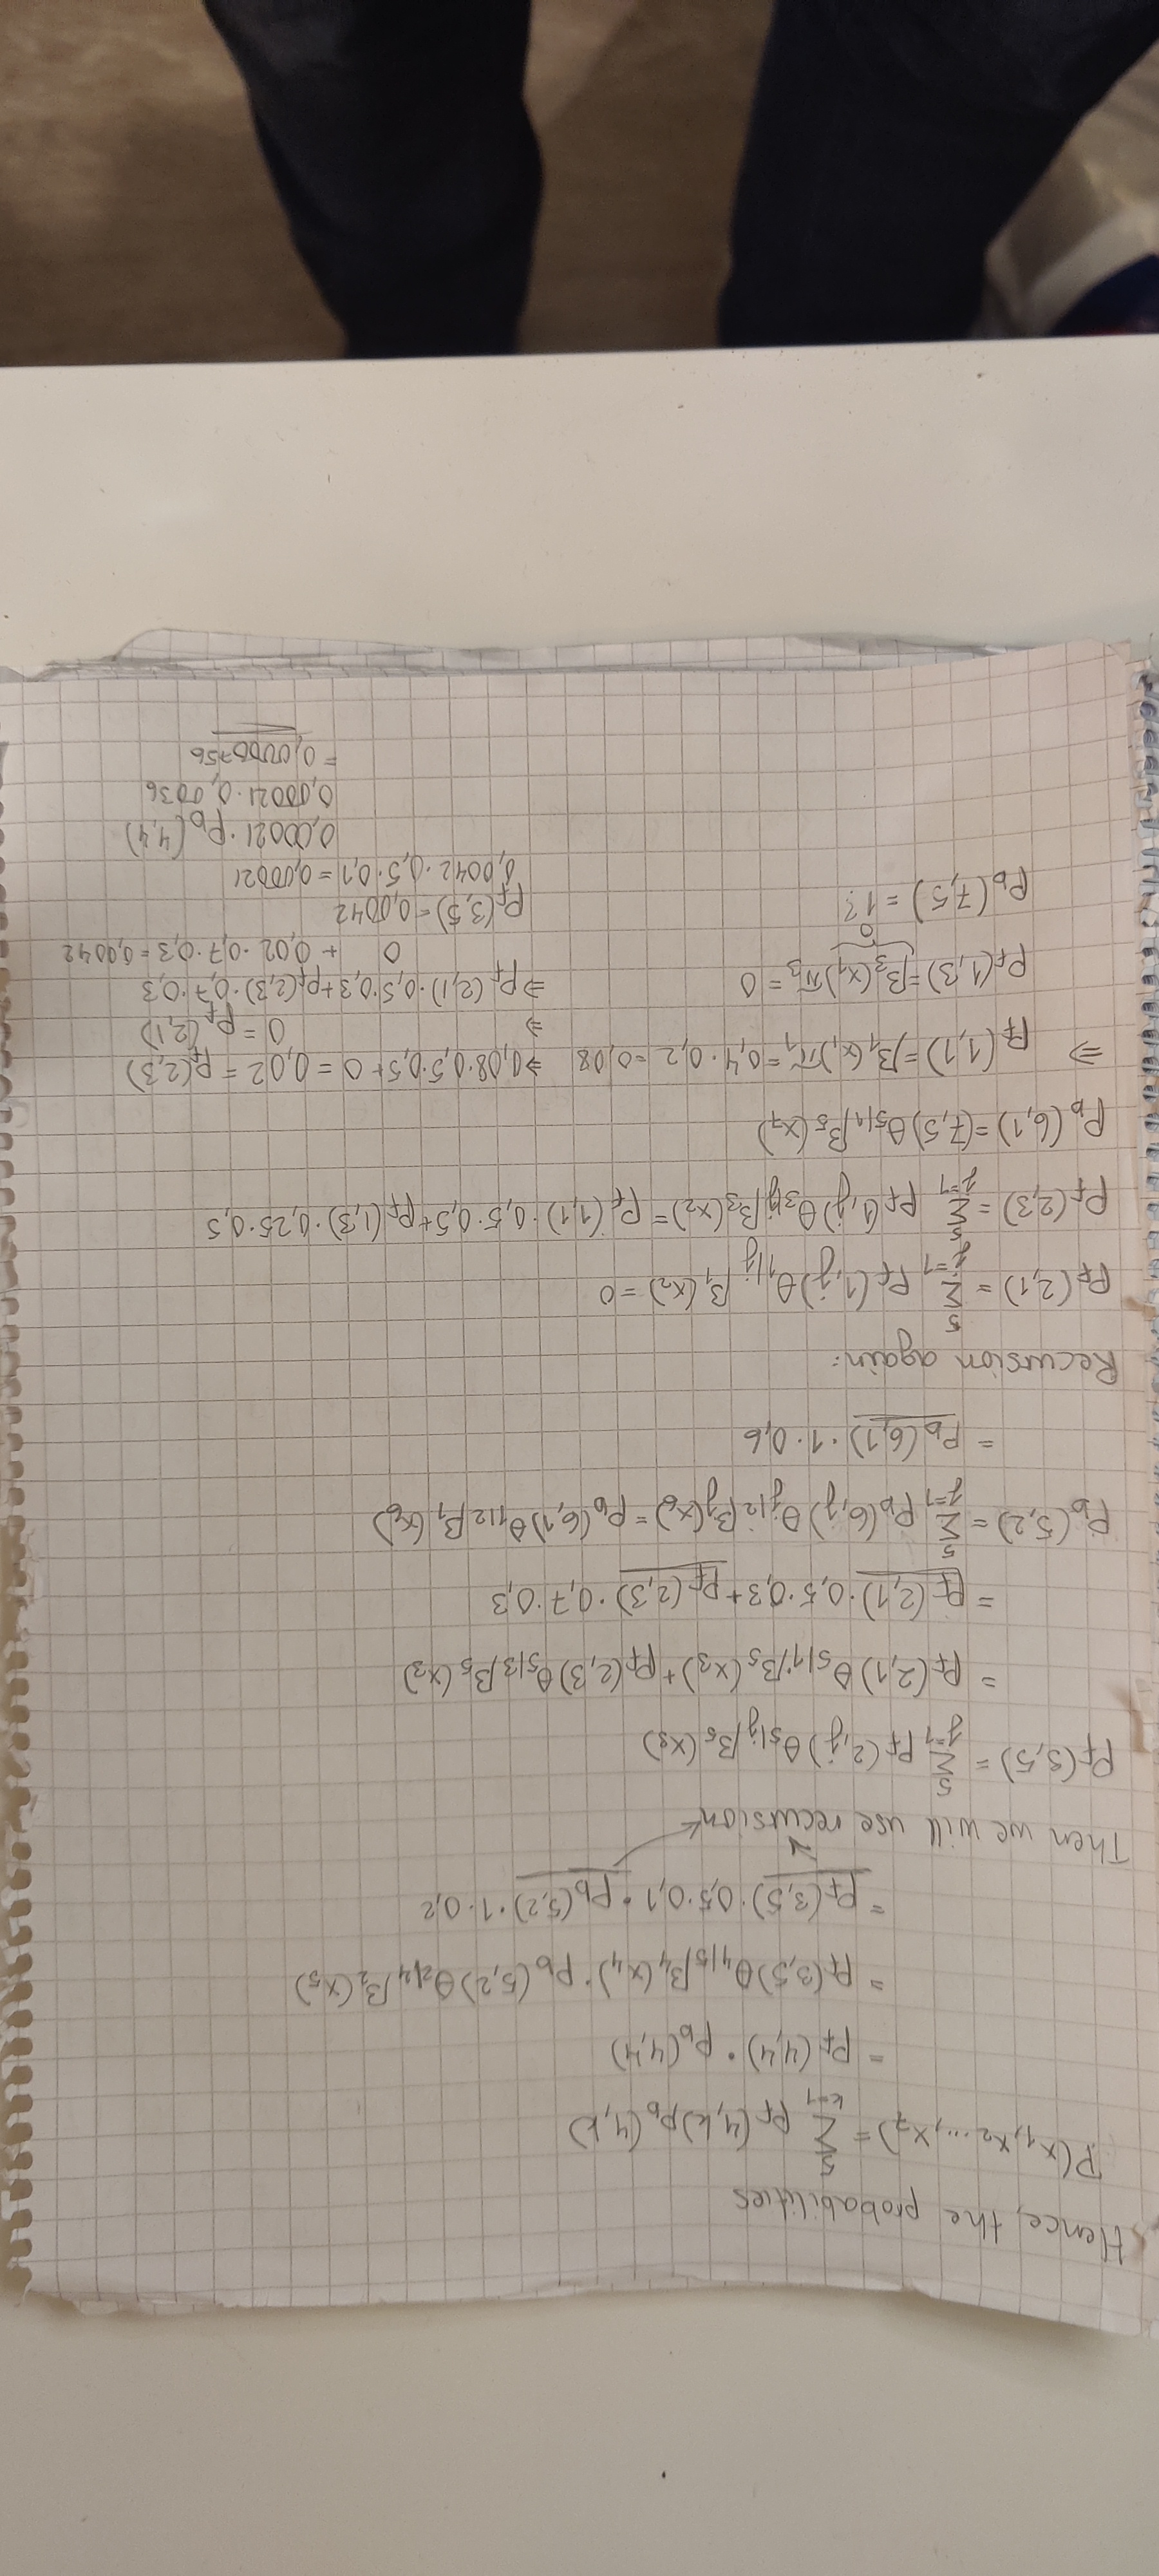 Hence, the probabilities
P(x₁,x₂...,x₇) = Σ_{k=1}^{5} p_f(4,k)p_b(4,k)
= p_f(4,4) · p_b(4,4)
= p_f(3,5)θ_{4|5}β₄(x₄) · p_b(5,2)θ_{2|4}β₂(x₅)
= p_f(3,5) · 0,5 · 0,1 · p_b(5,2) · 1 · 0,2
Then we will use recursion
p_f(3,5) = Σ_{j=1}^{5} p_f(2,j)θ_{5|j}β₅(x₃)
= p_f(2,1)θ_{5|1}β₅(x₃) + p_f(2,3)θ_{5|3}β₅(x₃)
= p_f(2,1) · 0,5 · 0,3 + p_f(2,3) · 0,7 · 0,3
p_b(5,2) = Σ_{j=1}^{5} p_b(6,j)θ_{j|2}β_j(x₆) = p_b(6,1)θ_{1|2}β₁(x₆)
= p_b(6,1) · 1 · 0,6
Recursion again:
p_f(2,1) = Σ_{j=1}^{5} p_f(1,j)θ_{1|j}β₁(x₂) = 0
p_f(2,3) = Σ_{j=1}^{5} p_f(1,j)θ_{3|j}β₃(x₂) = p_f(1,1) · 0,5 · 0,5 + p_f(1,3) · 0,25 · 0,5
p_b(6,1) = (7,5)θ_{5|1}β₅(x₇)
⇒ p_f(1,1) = β₁(x₁)π₁ = 0,4 · 0,2 = 0,08
p_f(1,3) = β₃(x₁)π₃ = 0
0
p_b(7,5) = 1?
⇒ 0,08 · 0,5 · 0,5 + 0 = 0,02 = p_f(2,3)
⇒ 0 = p_f(2,1)
⇒ p_f(2,1) · 0,5 · 0,3 + p_f(2,3) · 0,7 · 0,3
0 + 0,02 · 0,7 · 0,3 = 0,0042
p_f(3,5) = 0,0042
0,0042 · 0,5 · 0,1 = 0,00021
0,00021 · p_b(4,4)
0,00021 · 0,0036
= 0,000000756